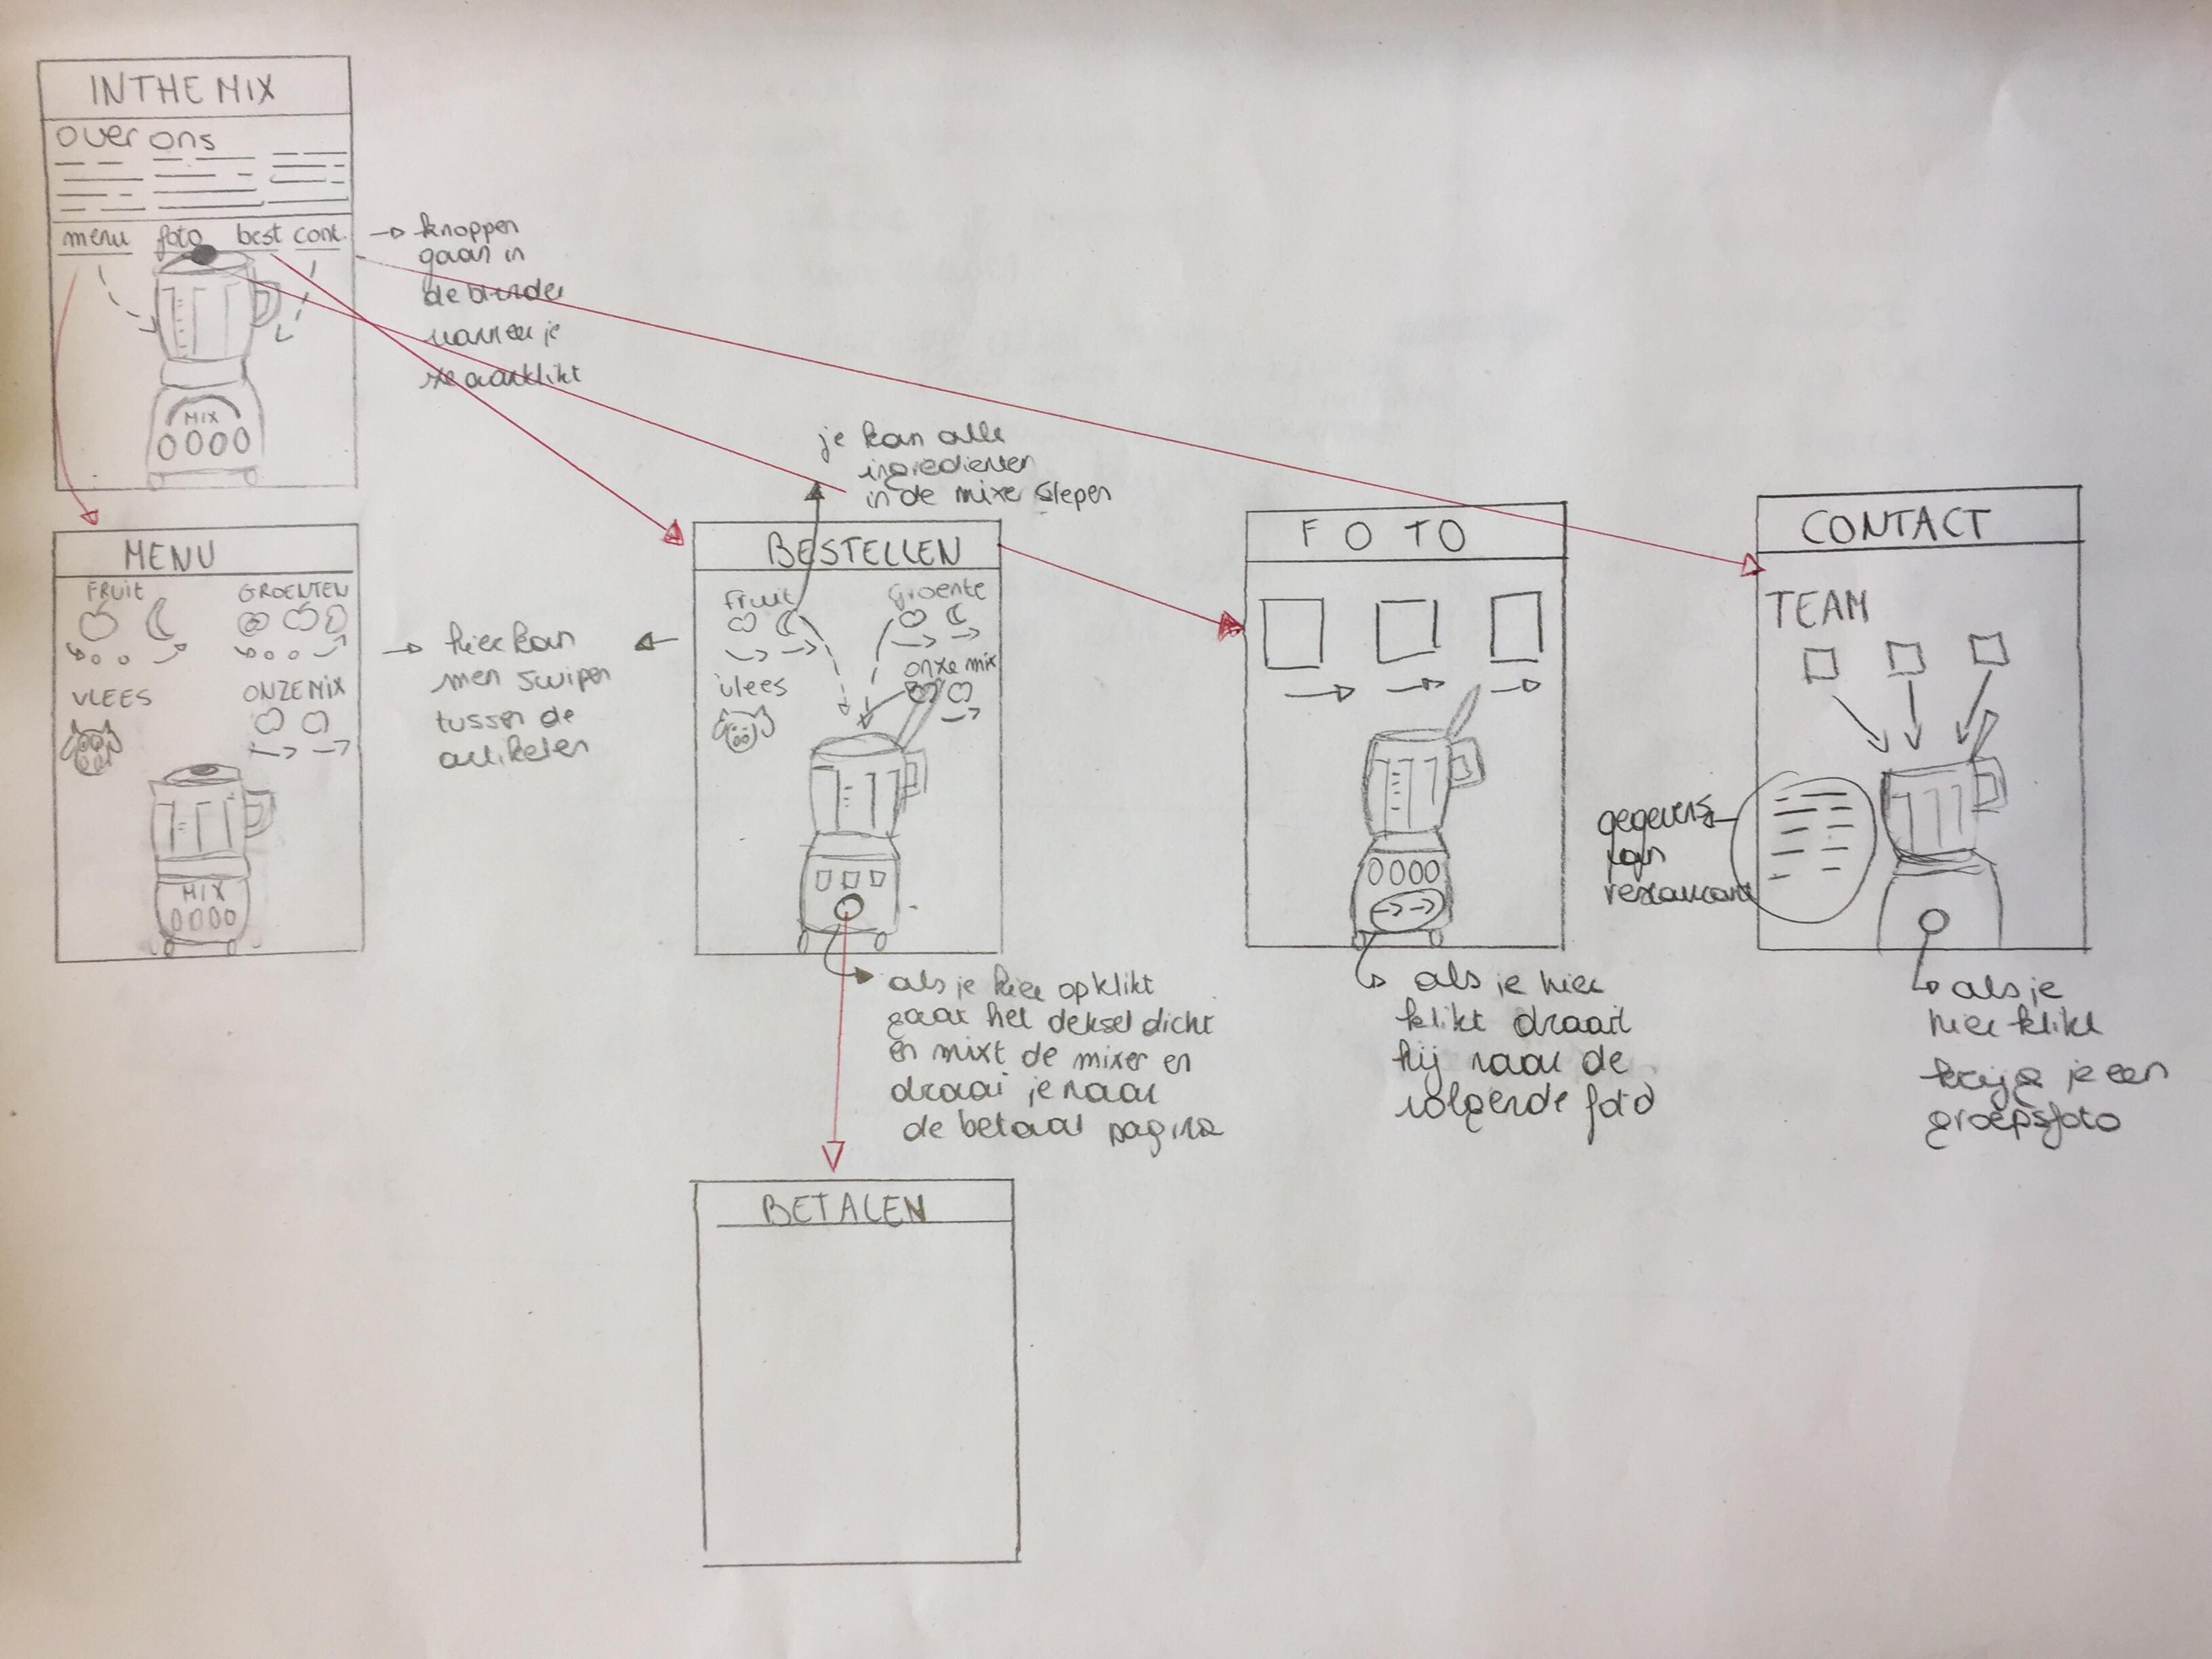 IN THE MIX
over ons
menu foto best cont.
knoppen
gaan in
de blender
wanneer je
ze aanklikt
MIX
MENU
FRUit
GROENTEN
VLEES
ONZE MIX
MIX
hier kan
men swipen
tussen de
artikelen
je kan alle
ingredienten
in de mixer slepen
BESTELLEN
Fruit
Groente
vlees
onze mix
als je hier op klikt
gaat het deksel dicht
en mixt de mixer en
draai je naar
de betaal pagina
BETALEN
FOTO
als je hier
klikt draait
hij naar de
volgende foto
CONTACT
TEAM
gegevens
van
restaurant
als je
hier klikt
krijg je een
groepsfoto